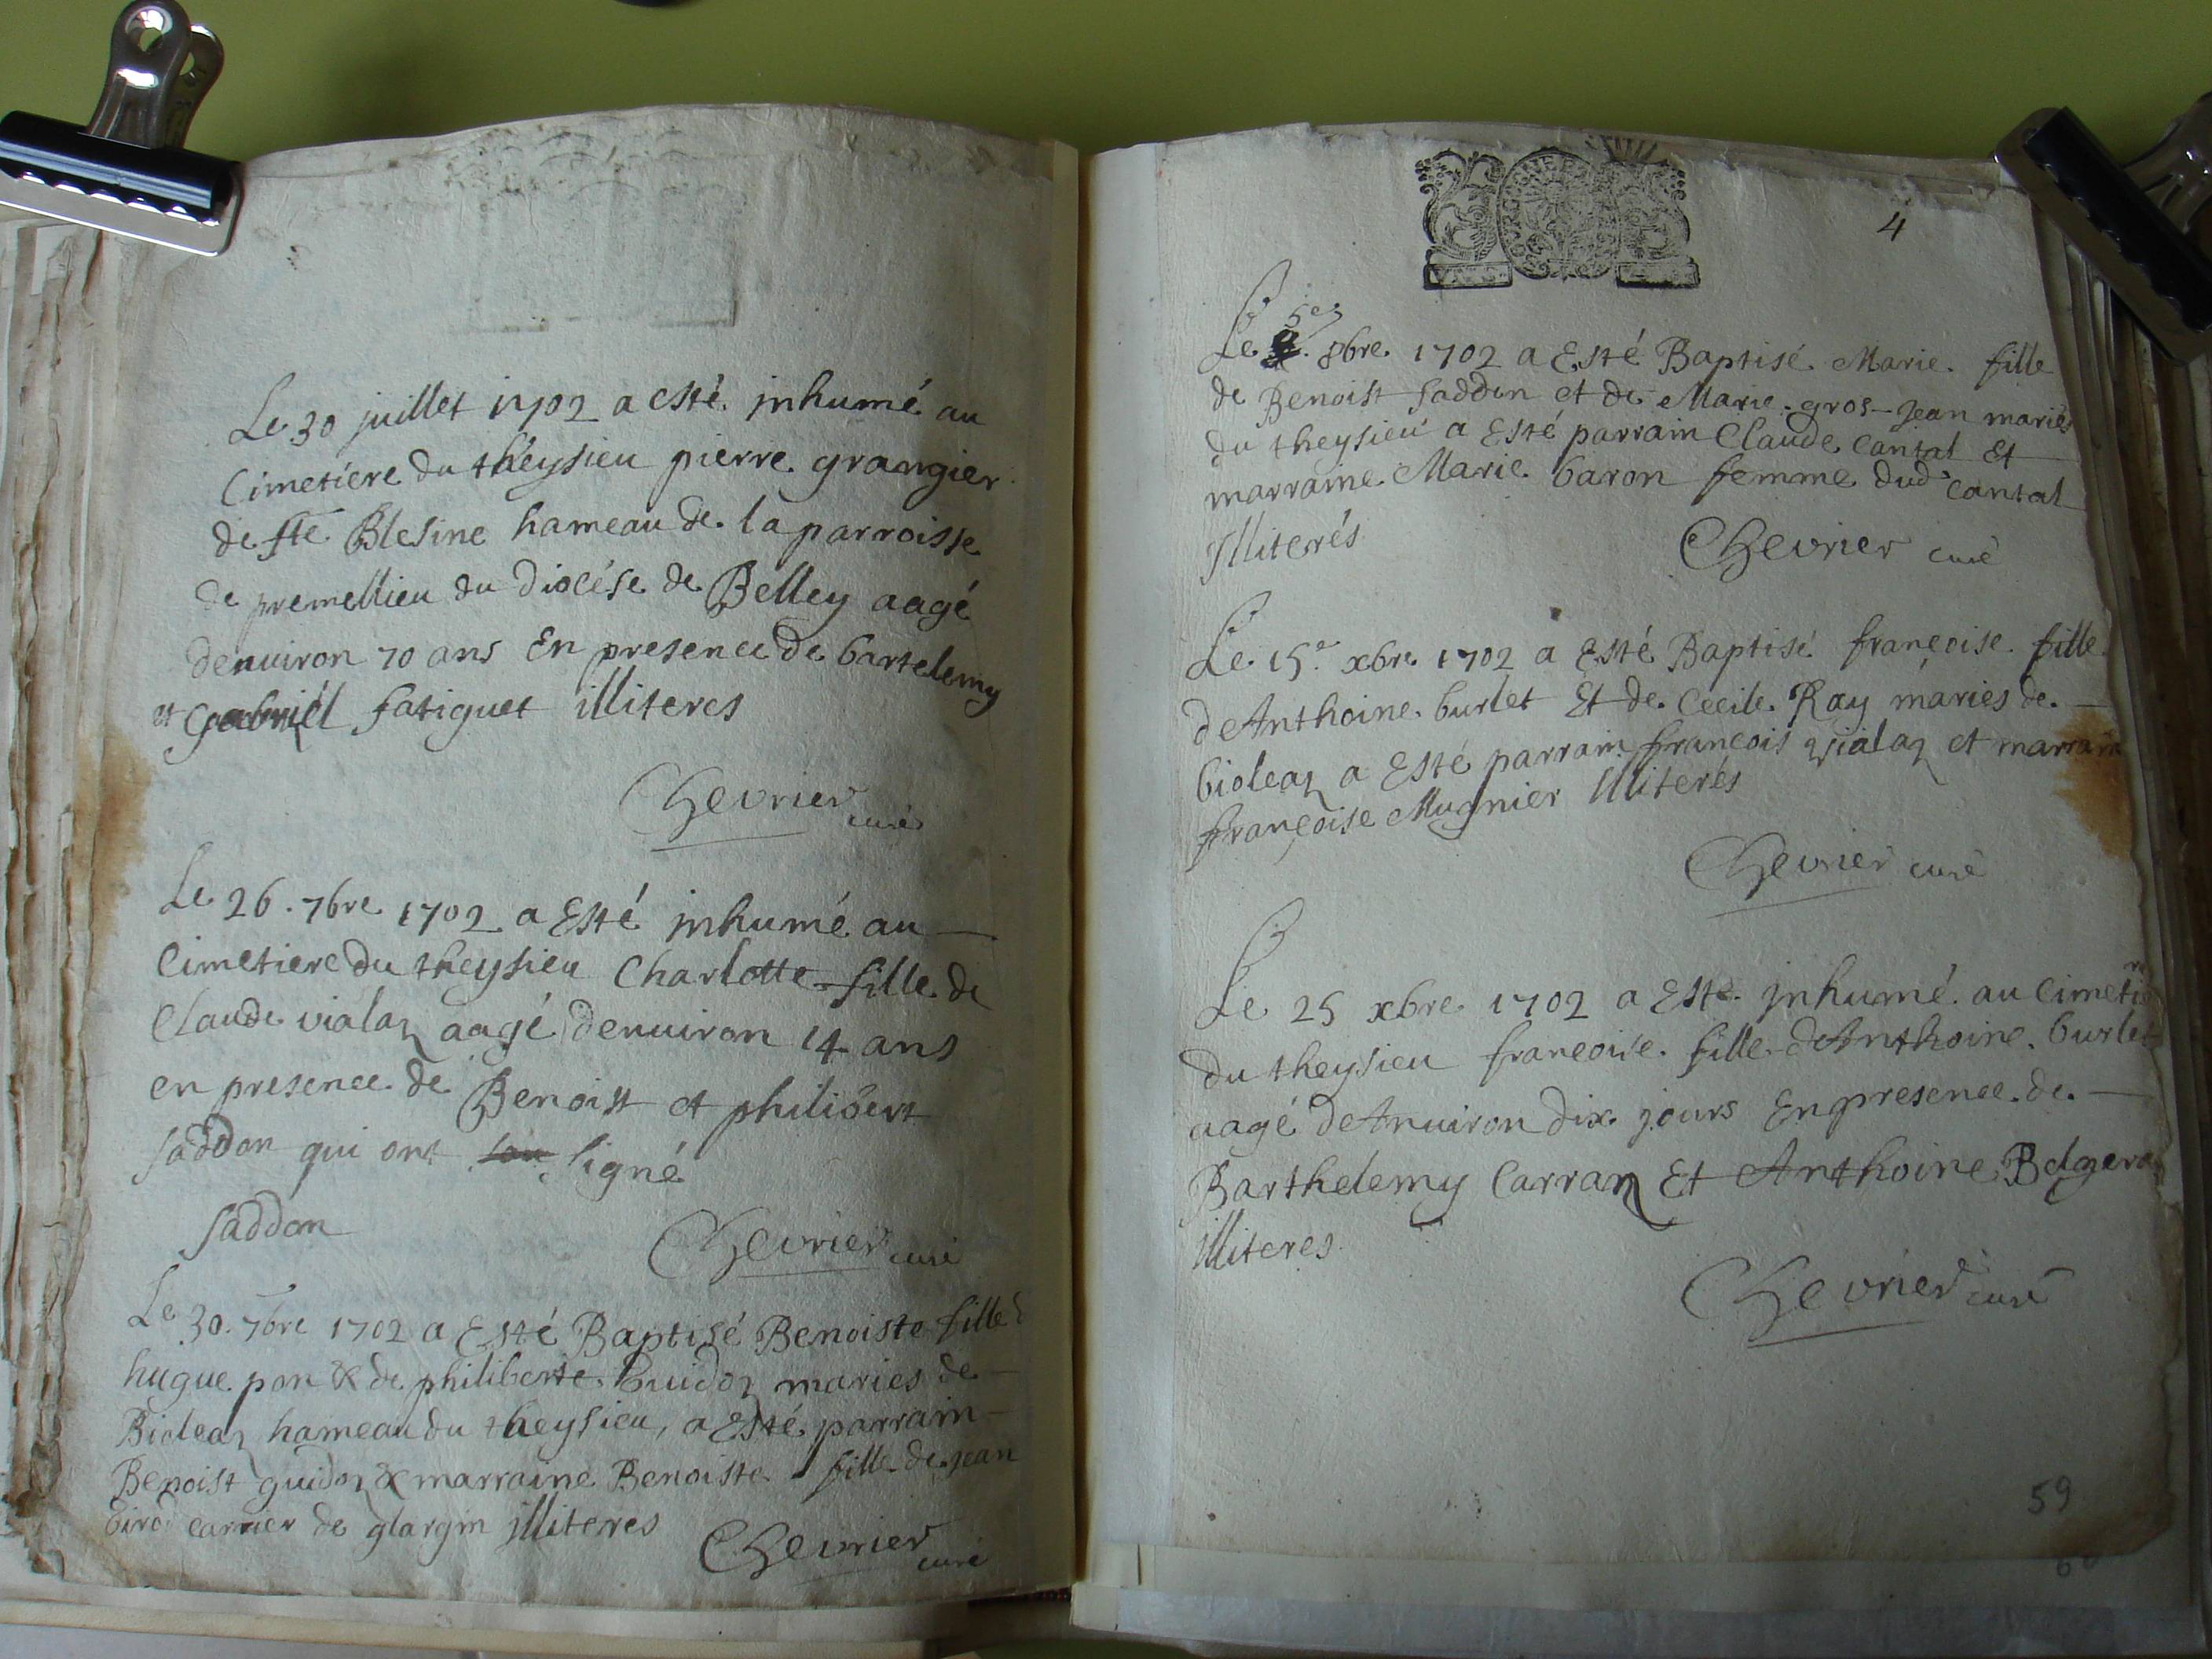 Le 30 juillet 1702 a esté inhumé au
Cimetiere du theysieu pierre grangier
de Ste Blesine hameau de la parroisse
de premellieu du Diocése de Belley aagé
denuiron 70 ans En presence de bartelemy
et Gabriél fatiguet illiteres
Chevrier curé
Le 26. 7bre 1702 a Esté inhumé au
Cimetiere du theysieu Charlotte fille de
Claude vialaz aagé denuiron 14 ans
en presence de Benoist et philibert
saddon qui ont signé
saddon
Chevrier curé
Le 30. 7bre 1702 a Esté Baptisé Benoiste fille d
hugue pon & de philiberte Guidoz maries de
Bioleaz hameau du theysieu, a Esté parrain
Benoist guidoz & marraine Benoiste fille de jean
de glargin illiteres
Chevrier curé
4
Le 5e 8bre 1702 a Esté Baptisé Marie fille
de Benoist saddon et de Marie gros-Jean mariés
du theysieu a Esté parrain Claude Cantal Et
marraine Marie baron femme dud Cantal
Illiterés
Chevrier curé
Le 15e xbre 1702 a Esté Baptisé françoise fille
dAnthoine burlet Et de Cecile Ray maries de
bioleaz a Esté parrain françois vialaz et marrain
françoise Mugnier Illiterés
Chevrier curé
Le 25 xbre 1702 a Esté inhumé au Cimetiere
du theysieu francoise fille dAnthoine burlet
aagé dAnuiron dix jours En presence de
Barthelemy Carraz Et Anthoine
illiteres
Chevrier curé
59
60